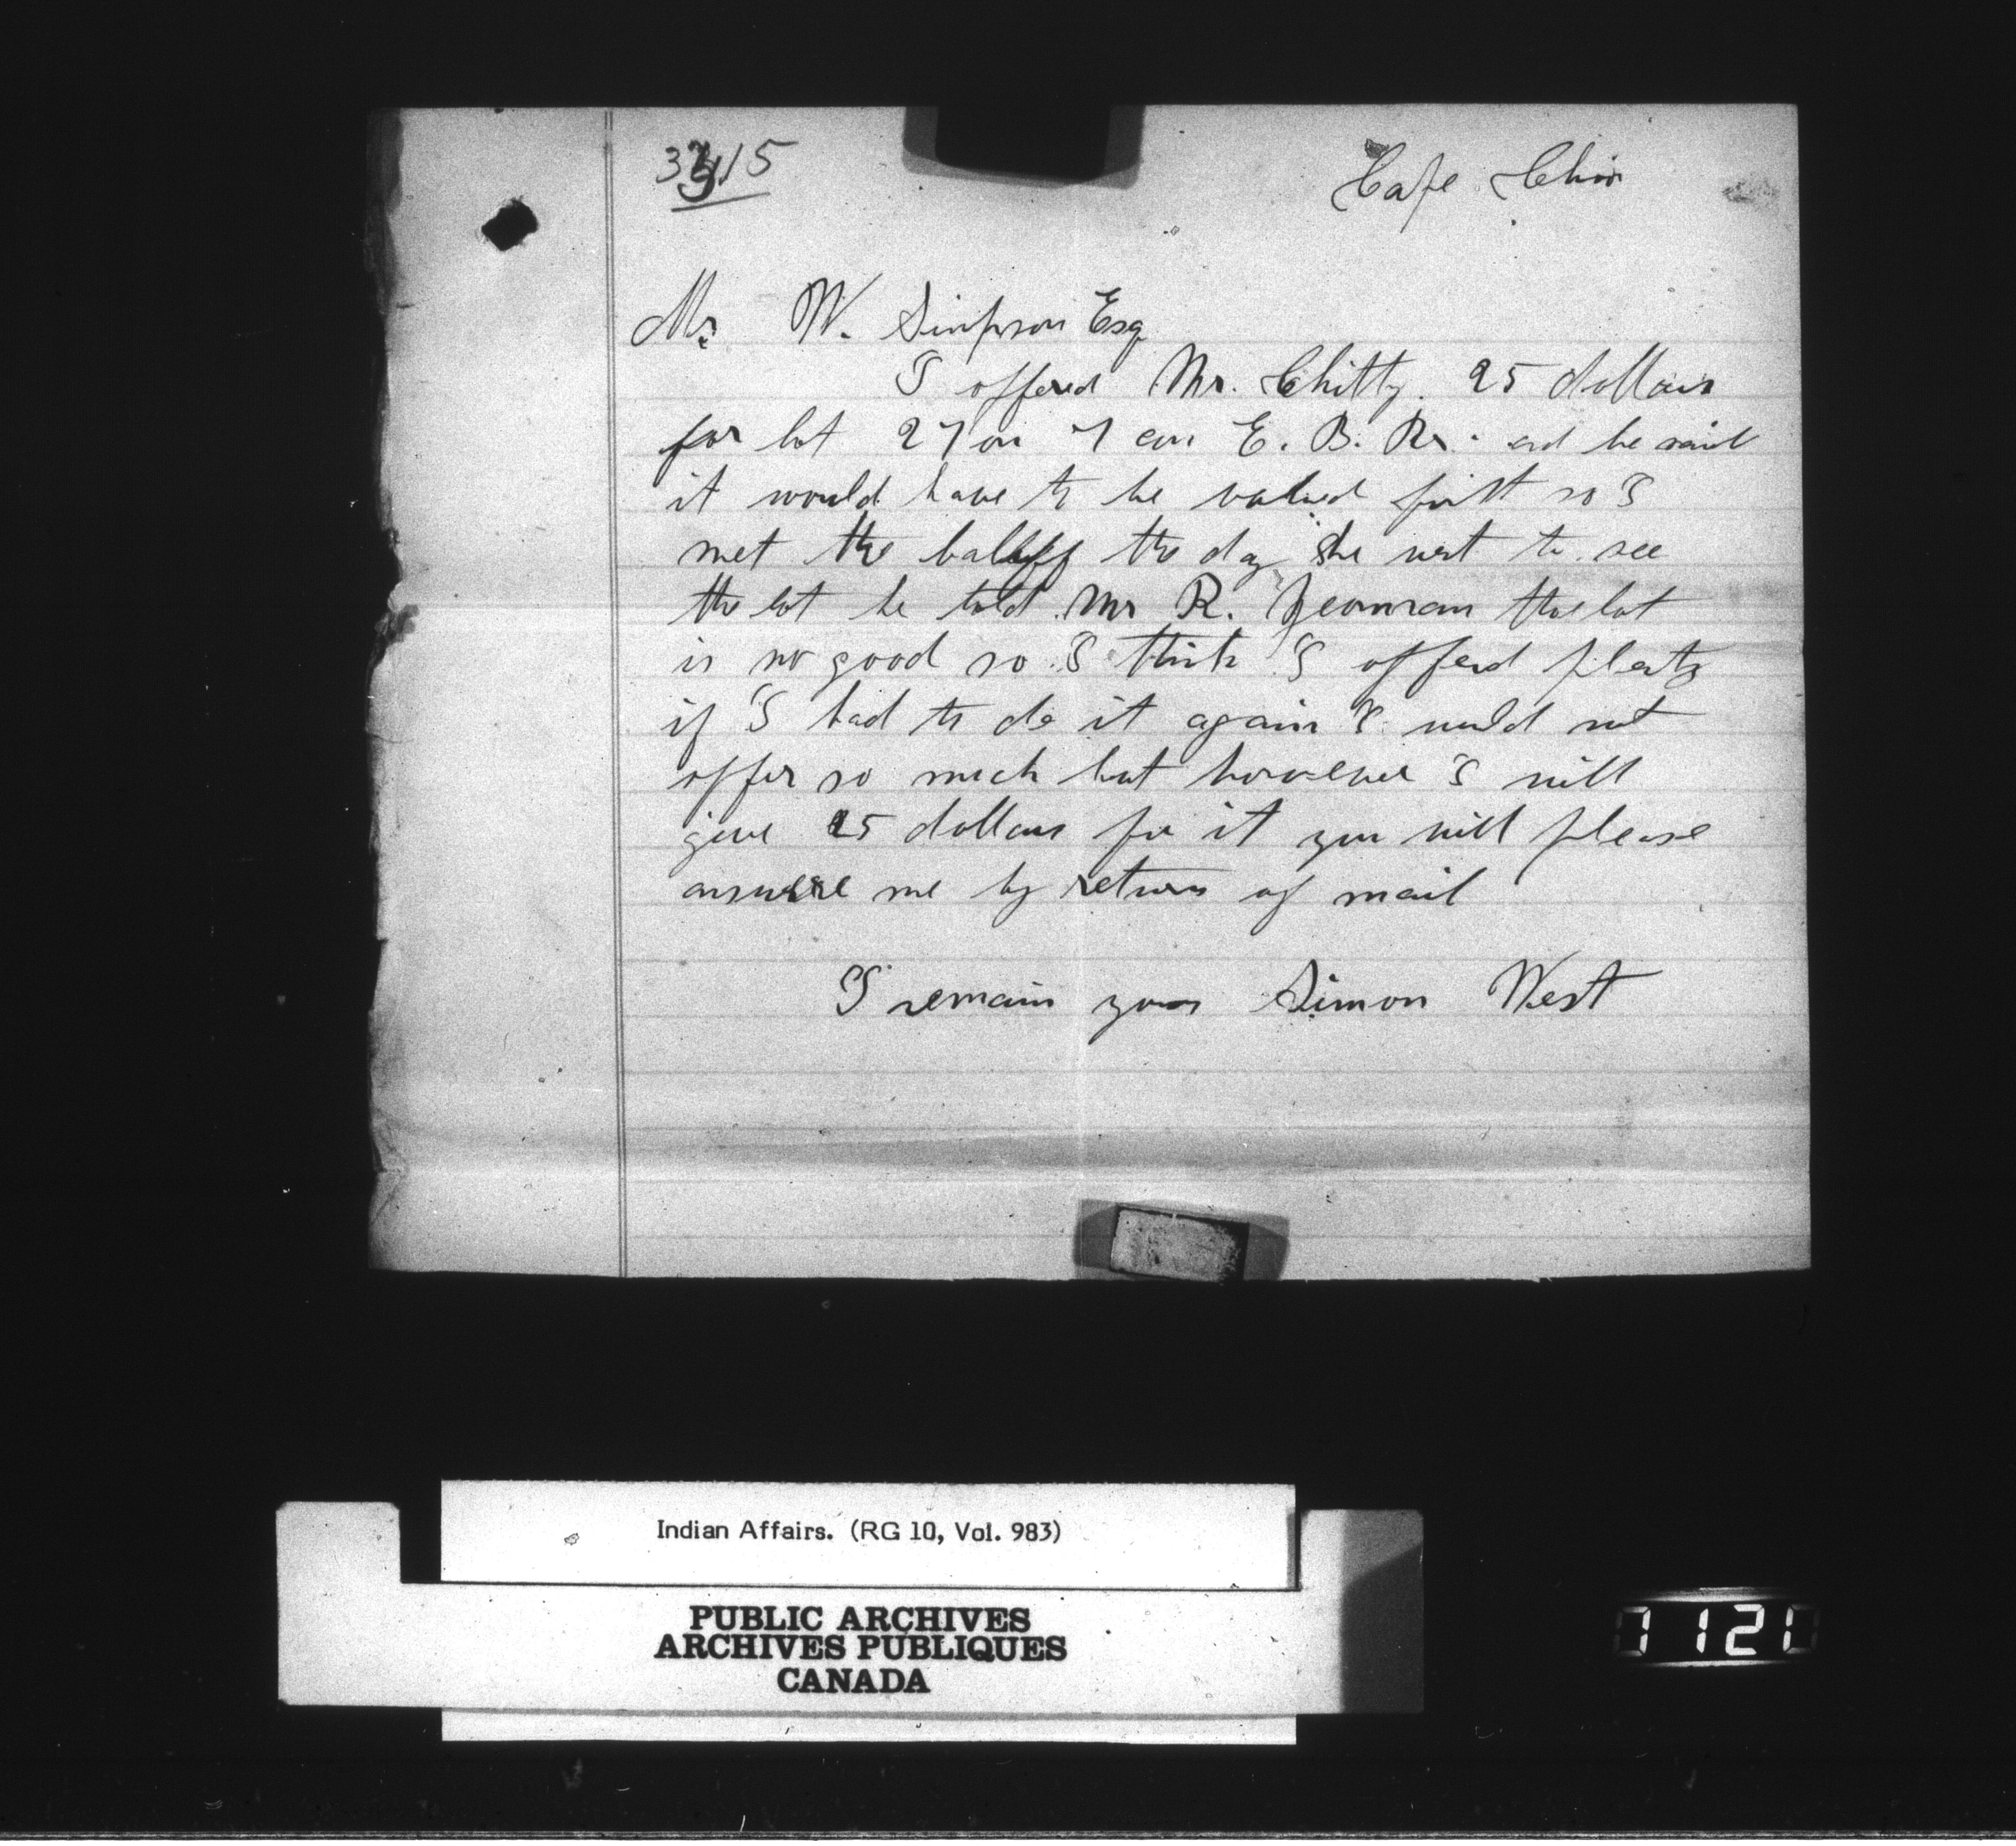 3315
Cape Chin
Mr W. Simpson Esq
I offered Mr. Chitty. 25 dollars
for lot 27 on 7 con E. B. R. and he said
it would have to be valued first so I
met the baliff the day he went to see
the lot he told Mr R. Yeomans the lot
is no good so I think I offerd plenty
if I had to do it again I would not
offer so much but however I will
give 25 dollars for it you will please
answere me by return of mail
I remain yours Simon West
Indian Affairs. (RG 10, Vol. 983)
PUBLIC ARCHIVES
ARCHIVES PUBLIQUES
CANADA
1121